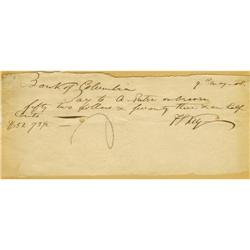 Bank of Columbia 9th Aug.
Pay to A. or bearer
fifty two dollars & seventy three & an half
Cents
$52.73½
F S Key